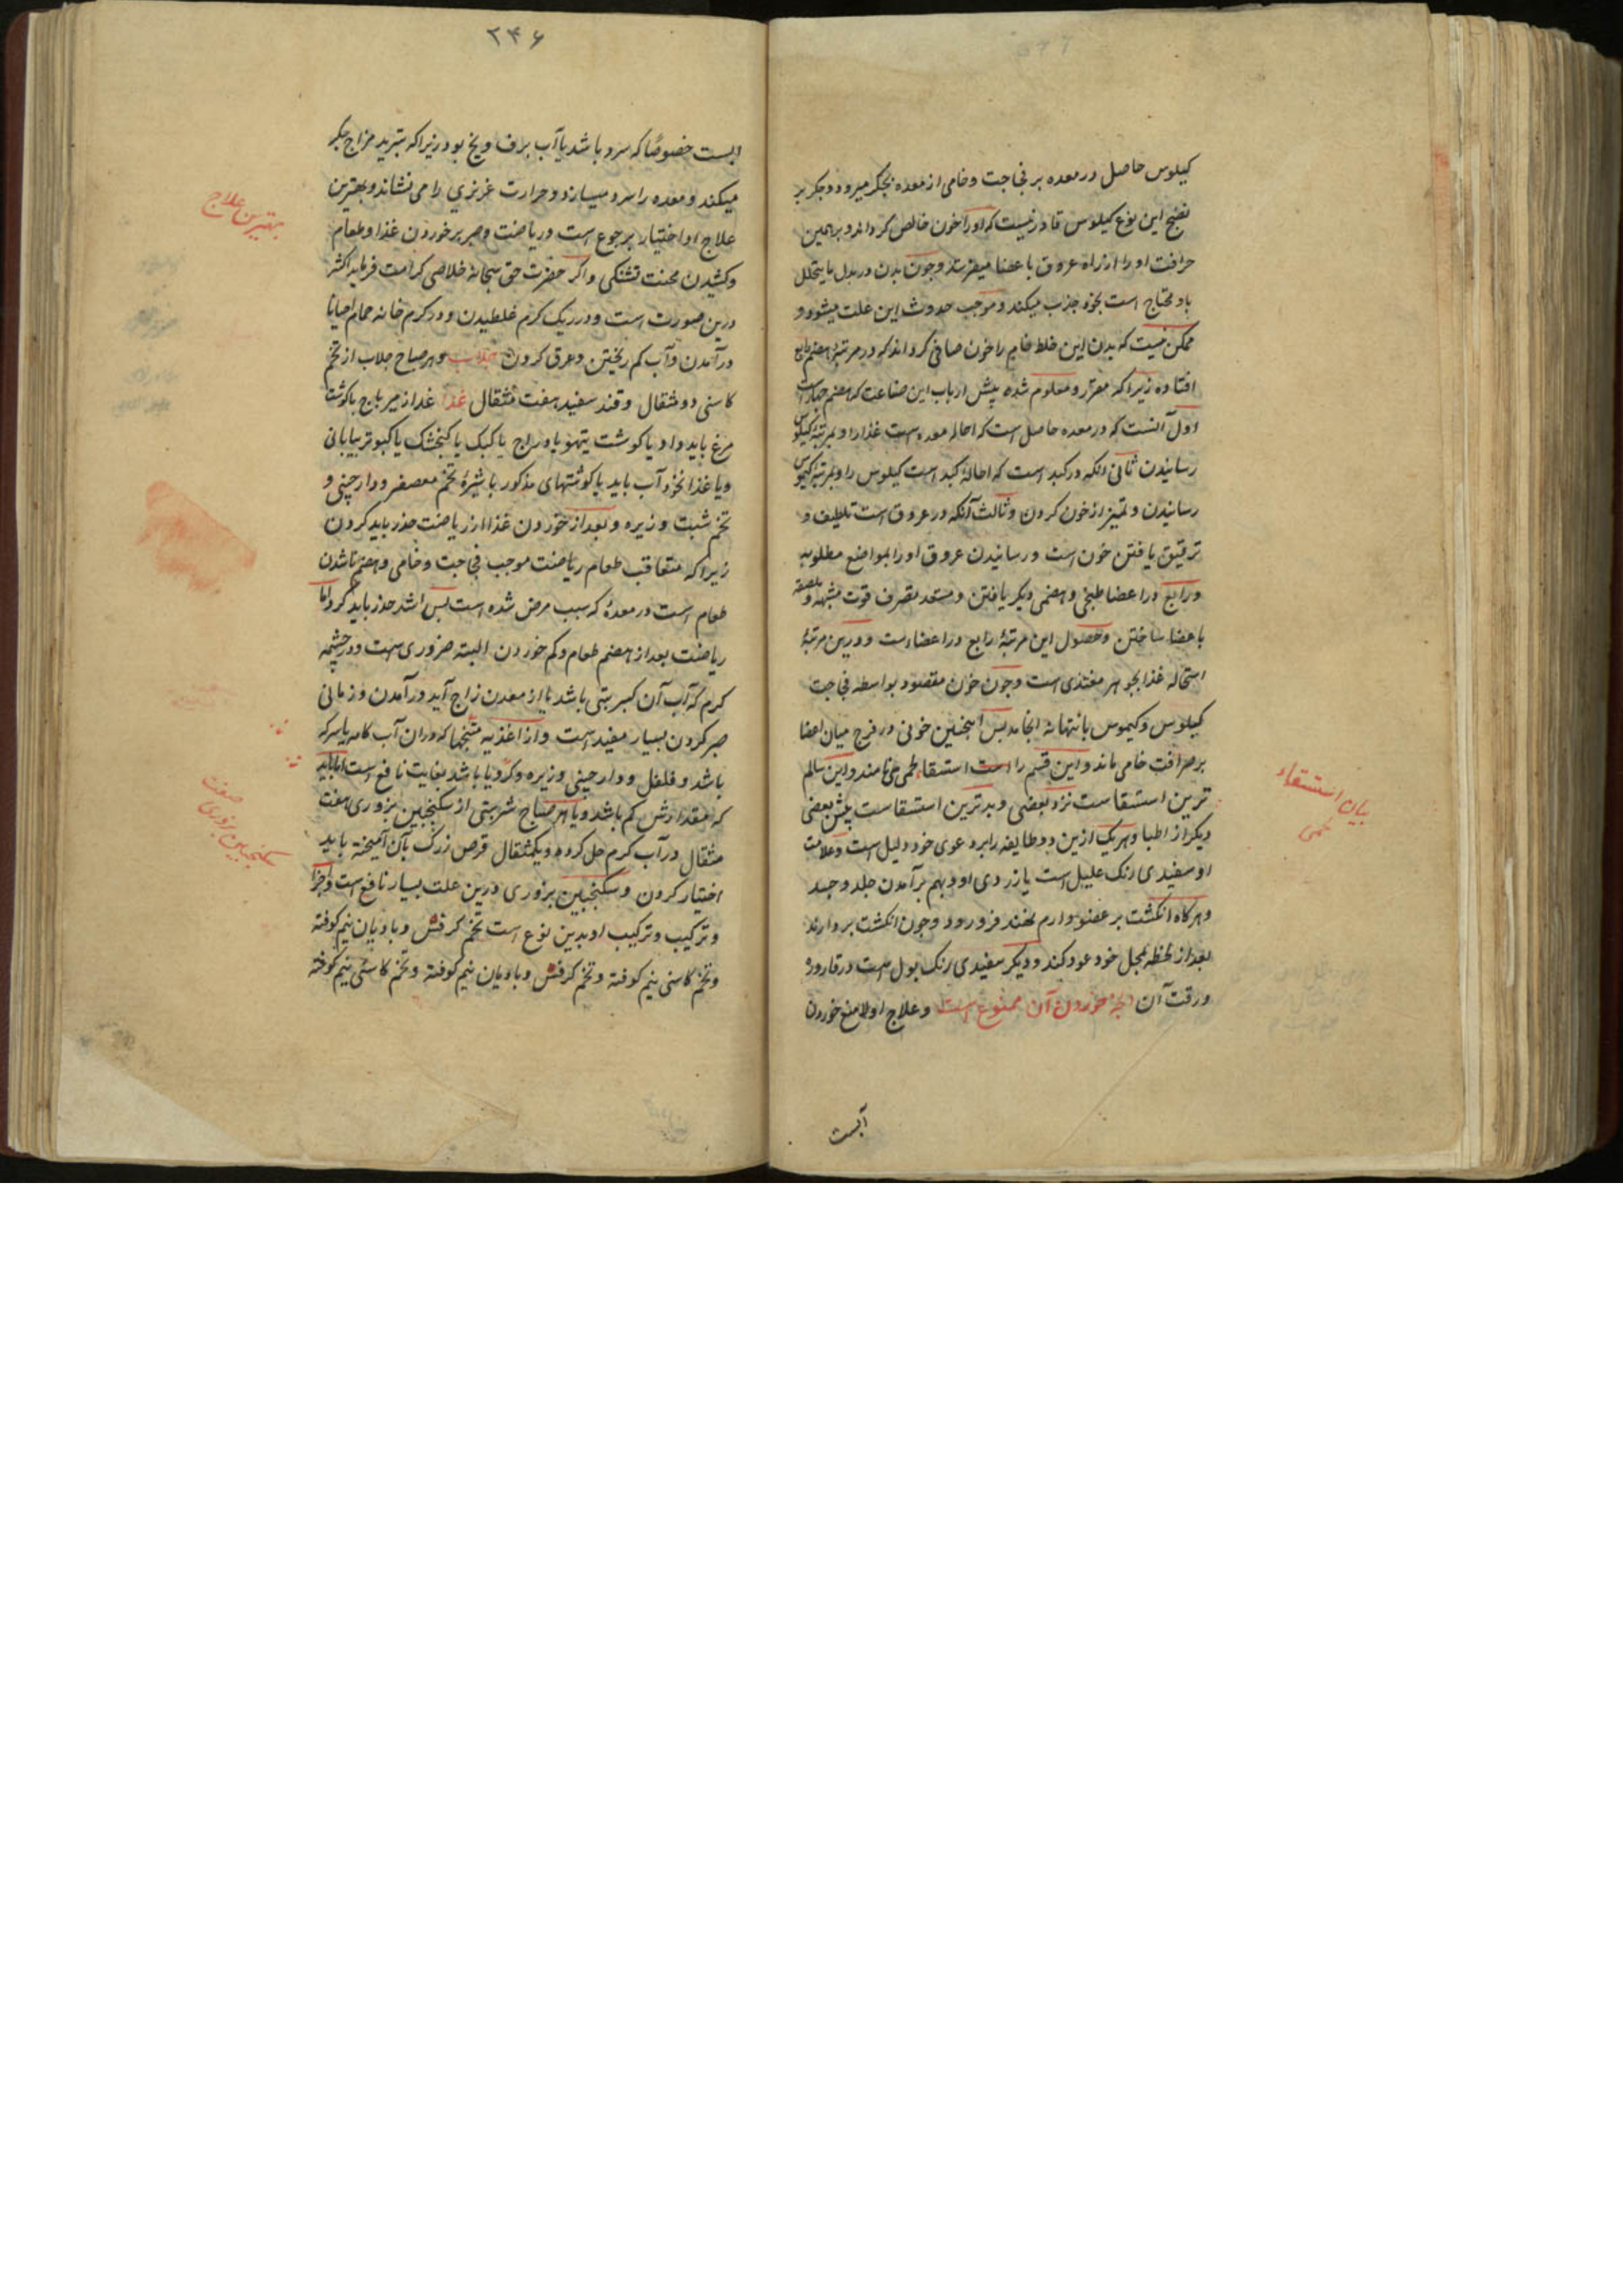 کیلوس حاصل در معده بر فجاجت و خامی از معده بجگر میرود و جگر بر
نضج این نوع کیلوس قادر نیست که او را خون خالص گرداند و بر همین
حرافت او را از راه عروق با عضا میفرستد و چون بدن در بدل ما یتحلل
باو محتاج است بخود جذب میکند و موجب حدوث این علت میشود و
ممکن نیست که بدن این خلط خام را خون صافی گرداند که در مرتبهٔ هضم رابع
افتاده زیرا که مقرر و معلوم شده پیش ارباب این صناعت که هضم چهار است
اول آنست که در معده حاصل است که احالهٔ معده است غذا را و بمرتبهٔ کیلوس
رسانیدن ثانی آنکه در کبد است که احالهٔ کبد است کیلوس را و بمرتبهٔ کیموس
رسانیدن و تمیز از خون کردن و ثالث آنکه در عروق است تلطیف و
ترقیق یافتن خون است و رسانیدن عروق او را بمواضع مطلوبه
و رابع در اعضا طبخی و هضمی دیگر یافتن و مستعد تصرف قوت مشبهه و ملصقه
باعضا ساختن و حصول این مرتبهٔ رابع در اعضاست و درین مرتبهٔ
استحاله غذا بجوهر مغتذی است و چون خون مقصود بواسطه فجاجت
کیلوس و کیموس بانتها نه انجامد پس اینچنین خونی در فرج میان اعضا
بر صرافت خامی ماند و این قسم را است استسقاء لحمی می نامند و این سالم
ترین استسقاست نزد بعضی و بدترین استسقاست پیش بعضی
دیگر از اطبا و هر یک ازین دو طایفه را بر دعوی خود دلیل است و علامت
او سفیدی رنگ علیل است یا زردی او و بهم برآمدن جلد و جسد
و هرگاه انگشت بر عضو وارم نهند فرو رود و چون انگشت بردارند
بعد از لحظه بمحل خود عود کند و دیگر سفیدی رنگ بول است در قاروره
و رقت آن آنچه خوردن آن ممنوع است و علاج اولا منع خوردن
آبست
بیان استسقاء
لحمی
۲۴۶
ابست خصوصًا که سرد باشد یا آب برف و یخ بود زیرا که تبرید مزاج جگر
میکند و معده را سرد میسازد و حرارت غریزی را می نشاند و بهترین
علاج او اختیار بر جوع است و ریاضت و صبر بر خوردن غذا و طعام
و کشیدن محنت تشنگی و اگر حضرت حق سبحانه خلاصی کرامت فرماید اکثر
درین صورت است و در ریگ گرم غلطیدن و در گرم خانه حمام احیانا
درآمدن و آب کم ریختن و عرق کردن جلاب و هر صباح جلاب از تخم
کاسنی دو مثقال و قند سفید هفت مثقال غذا غدا از میر باج باگوشت
مرغ باید داد یا گوشت تیهو یا دراج یا کبک یا کنجشک یا کبوتر بیابانی
و یا غذا نخود آب باید با گوشتهای مذکور با شیرهٔ تخم معصفر و دارچینی و
تخم شبت و زیره و بعد از خوردن غذا از ریاضت حذر باید کردن
زیرا که متعاقب طعام ریاضت موجب فجاجت و خامی و هضم ناشدن
طعام است در معده که سبب مرض شده است پس اشد حذر باید کرد اما
ریاضت بعد از هضم طعام و کم خوردن البته ضروری است و در چشمه
گرم که آب آن کبریتی باشد یا از معدن زاج آید درآمدن و زمانی
صبر کردن بسیار مفید است و از اغذیه متنجها که در ان آب کامه یا سرکه
باشد و فلفل و دارچینی و زیره و کرویا باشد بغایت نافع است اما باید
که مقدارش کم باشد و یا هر صباح شربتی از سکنجبین بزوری هفت
مثقال در آب گرم حل کرده و یکمثقال قرص زرک بآن آمیخته باید
اختیار کردن و سکنجبین بزوری درین علت بسیار نافع است و اجزا
و ترکیب و ترکیب او بدین نوع است تخم کرفس و بادیان نیم کوفته
و تخم کاسنی نیم کوفته و تخم کرفس و بادیان نیم کوفته و تخم کاسنی نیم کوفته
بهترین علاج
صفت
سکنجبین بزوری